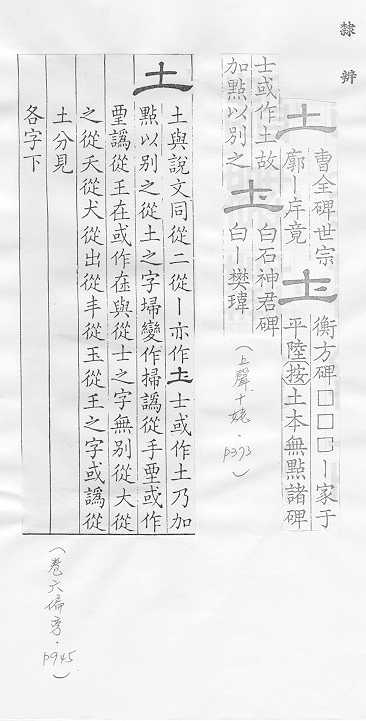 隸辨
土
曹全碑世宗
廓丨㡿竟
圡
衡方碑□□□丨家于
平陸按土本無點諸碑
士或作土故
加點以別之
圡
白石神君碑
白丨樊瑋
(上聲十姥.p373)
土
土與說文同從二從丨亦作圡士或作土乃加
點以別之從土之字埽變作掃譌從手堊或作
堊譌從王在或作在與從士之字無別從大從
之從夭從犬從出從丰從玉從王之字或譌從
土分見
各字下
(卷六偏旁.p945)